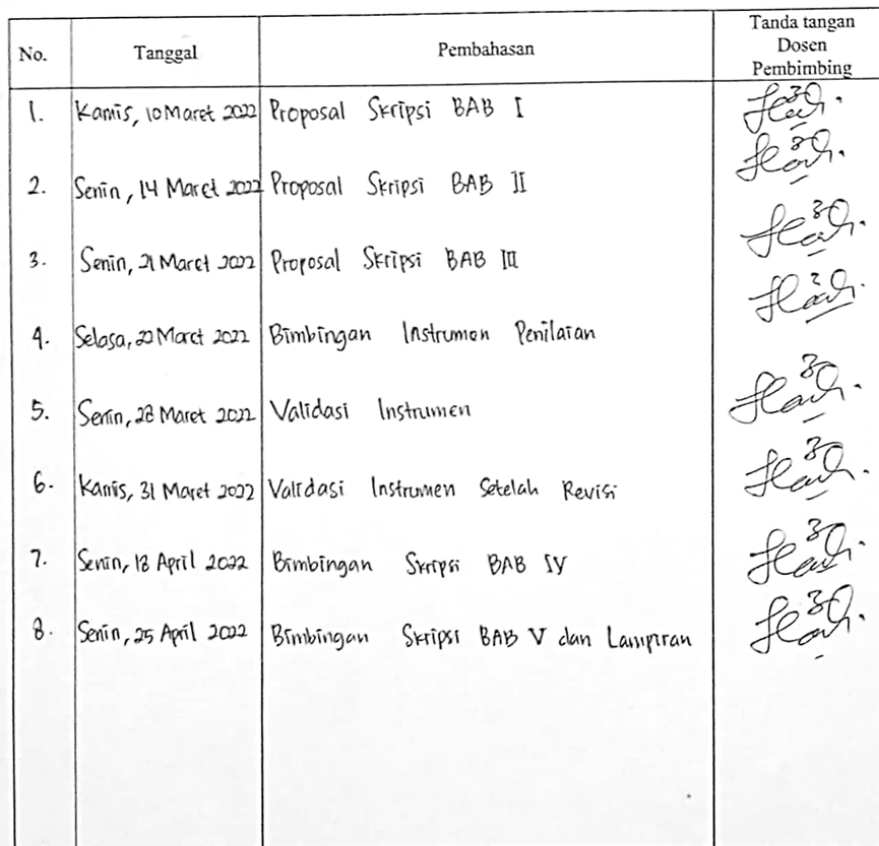 No. Tanggal Pembahasan Tanda tangan
Dosen
Pembimbing
1. Kamis, 10 Maret 2022 Proposal Skripsi BAB I
2. Senin, 14 Maret 2022 Proposal Skripsi BAB II
3. Senin, 21 Maret 2022 Proposal Skripsi BAB III
4. Selasa, 22 Maret 2022 Bimbingan Instrumen Penilaian
5. Senin, 28 Maret 2022 Validasi Instrumen
6. Kamis, 31 Maret 2022 Validasi Instrumen Setelah Revisi
7. Senin, 18 April 2022 Bimbingan Skripsi BAB IV
8. Senin, 25 April 2022 Bimbingan Skripsi BAB V dan Lampiran